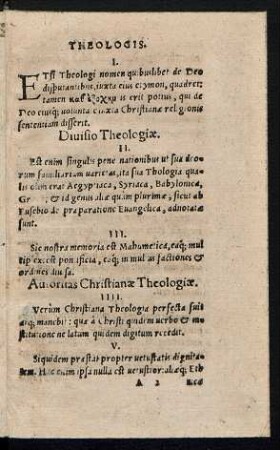 THEOLOGIS.
I.
ETsi Theologi nomen quibuslibet de Deo
disputantibus, iuxta eius etymon, quadret:
tamen κατ' ἐξοχὴν is erit potius, qui de
Deo eiusq́; voluntate iuxta Christianæ religionis
sententiam disserit.
Diuisio Theologiæ.
II.
Est enim singulis pene nationibus vt sua deo-
rum familiarium varietas, ita sua Thologia qua-
lis olim erat Aegyptiaca, Syriaca, Babylonica,
& id genus aliæ quàm plurimæ, sicut ab
Eusebio de præparatione Euangelica, adnotatæ
sunt.
III.
Sic nostra memoria est Mahumetica, eaq́; mul
tiplex: est pontificia, eaq́; in multas factiones &
ordines diuisa.
Autoritas Christianæ Theologiæ.
IIII.
Verùm Christiana Theologia perfecta suis
manebit: quæ à Christi quidem verbo & in-
stitutione ne latum quidem digitum recedit.
V.
Siquidem præstat propter vetustatis dignita-
tem. Hac enim ipsa nulla est vetustior: abæq́; Eth
A 2